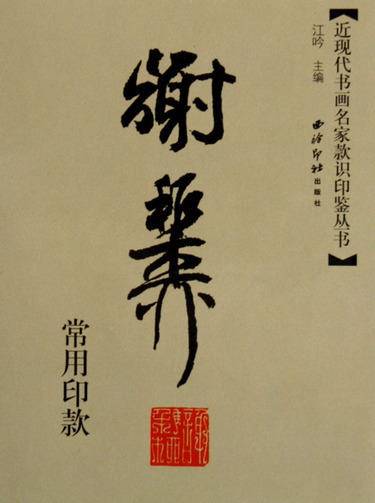 【近现代书画名家款识印鉴丛书】
江吟 主编
西泠印社出版社
謝
常用印款